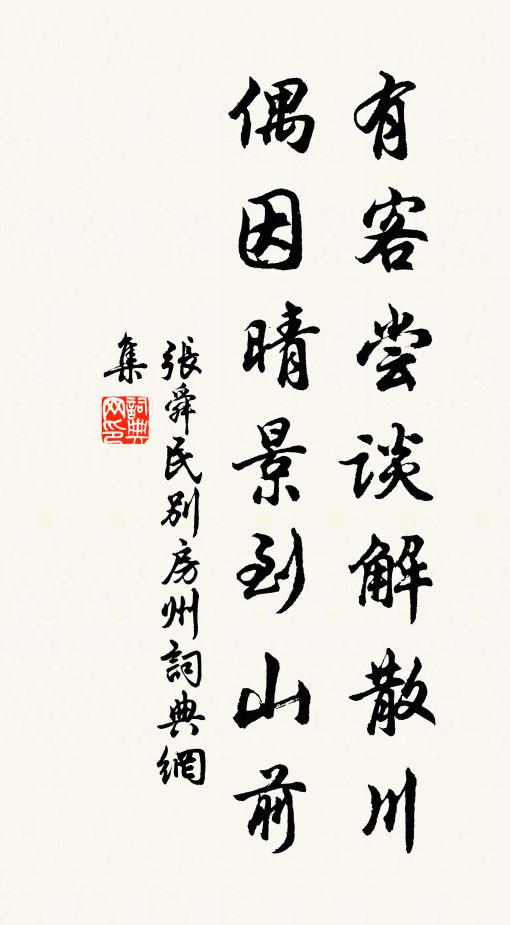 有客尝谈解散川
偶因晴景到山前
張舜民别房州詞典網
集
詞典网印